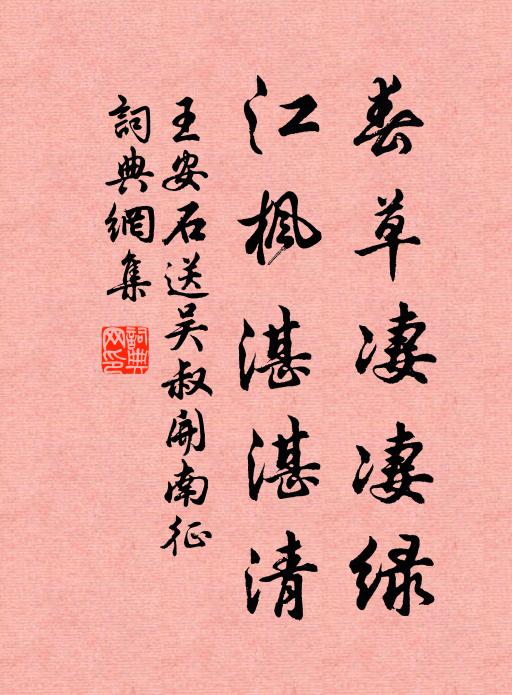 春草凄凄绿
江枫湛湛清
王安石送吴叔开南征
詞典網集
詞典网印